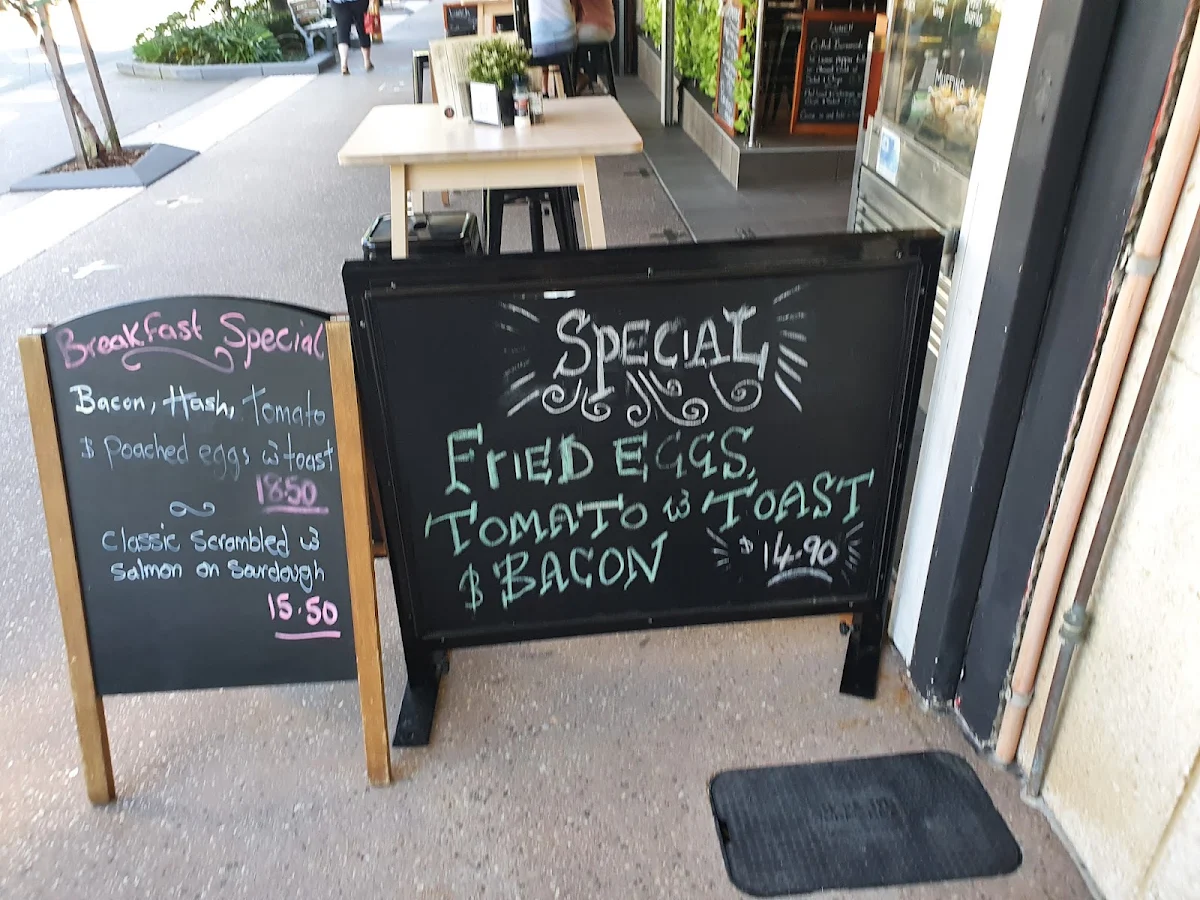 Breakfast Special
Bacon, Hash, Tomato
& poached eggs w toast
18.50
Classic Scrambled w
Salmon on Sourdough
15.50
SPECIAL
FRIED EGGS,
TOMATO w TOAST
& BACON
$14.90
MUFFINS
LUNCH